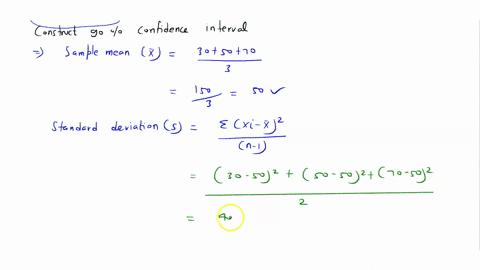 Construct 90 % Confidence interval
=) Sample mean (x̄) = 30+50+70 / 3
= 150 / 3 = 50 ✓
Standard deviation (s) = Σ (xi - x̄)² / (n-1)
= (30-50)² + (50-50)² + (70-50)² / 2
= 40